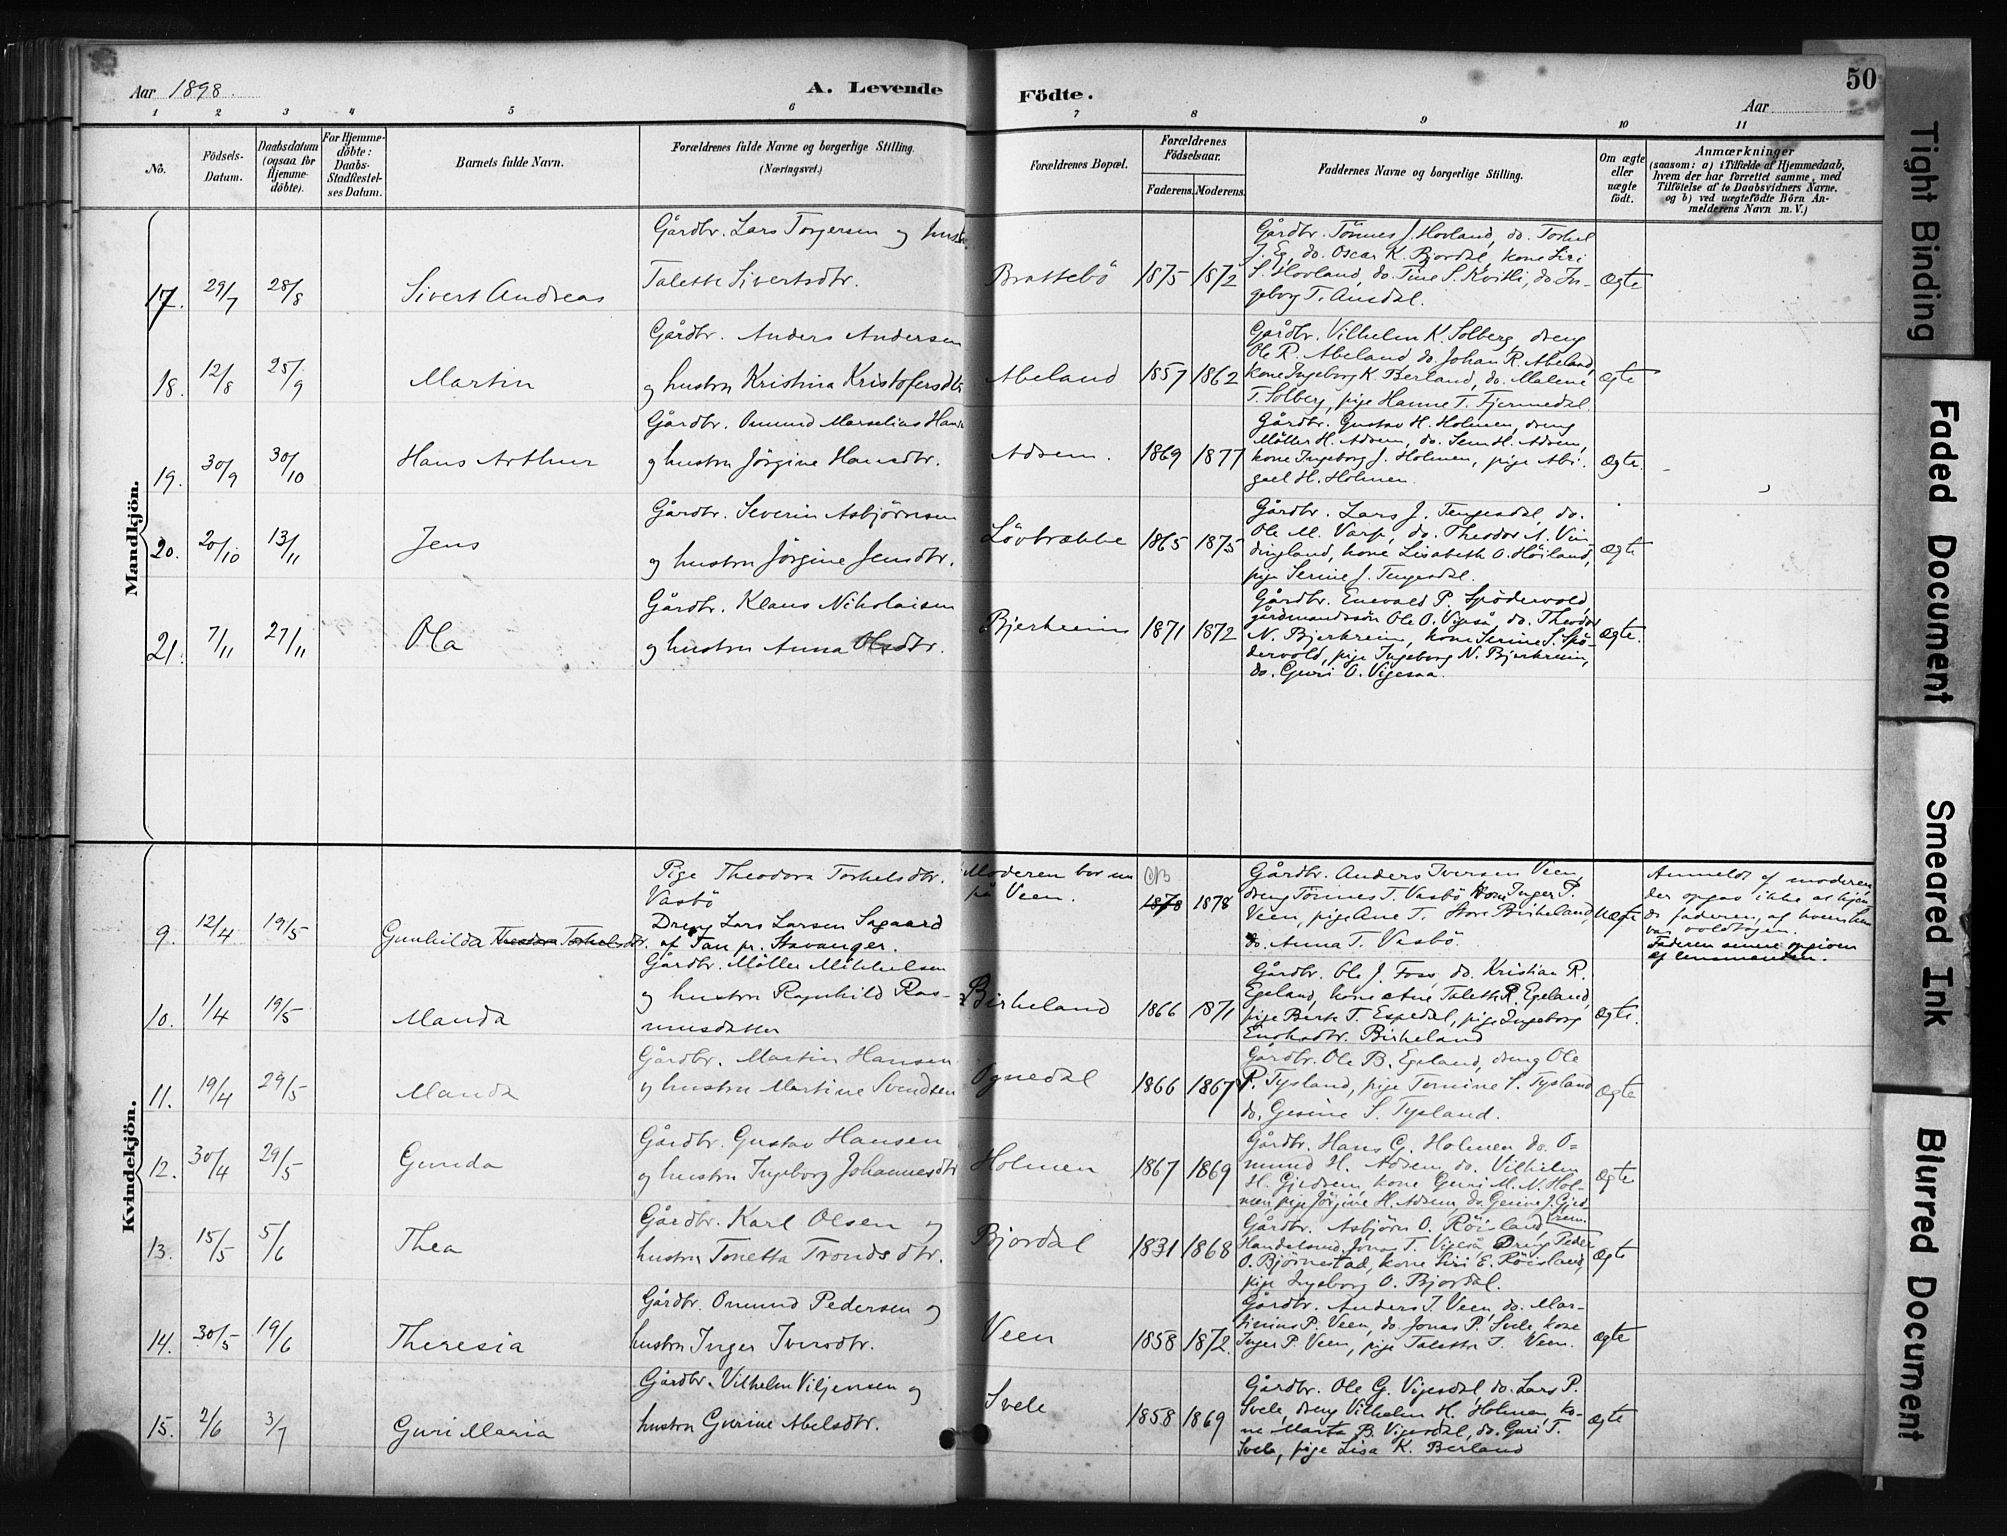 Aar 1898.
A. Levende
Födte.
50
Aar
1 2 3 4 5 6 7 8 9 10 11
No.
Födsels-
Datum.
Daabsdatum
(ogsaa for
Hjemme-
döbte).
For Hjemme-
döbte:
Daabs-
Stadfæstel-
ses Datum.
Barnets fulde Navn.
Forældrenes fulde Navne og borgerlige Stilling.
(Næringsvei.)
Forældrenes Bopæl.
Forældrenes
Födselsaar.
Faderens. Moderens.
Faddernes Navne og borgerlige Stilling.
Om ægte
eller
uægte
födt.
Anmærkninger
(saasom: a) i Tilfælde af Hjemmedaab,
hvem der har forrettet samme, med
Tilföielse af to Daabsvidners Navne.
og b) ved uægtefödte Börn An-
melderens Navn m. V.)
Mandkjön.
17. 29/7 28/8 Sivert Andreas
Gårdbr. Lars Torgersen og hustr.
Talette Sivertsdtr.
Brattebö 1875 1872
Gårdbr. Tönnes J. Hovland, do. Torkel
J. Eg, do. Oscar K. Bjordal, kone Siri
S. Hovland, do. Tine S. Kvitli, do. In-
geborg T. Aasdal.
Ægte
18. 12/8 25/9 Martin
Gårdbr. Anders Andersen
og hustru Kristina Kristofersdtr
Abeland 1857 1862
Gårdbr. Vilhelm K. Solberg, dreng
Ole R. Abeland do. Johan R. Abeland,
kone Ingeborg K. Berland, do. Malene
T. Solberg, pige Hanne T. Fjermedal.
Ægte
19. 30/9 30/10 Hans Arthur
Gårdbr. Omund Marselius Hans
og hustru Jörgine Hansdtr.
Adsem. 1869 1877
Gårdbr. Gustav H. Holmen, dreng
Möller H. Adsem, do. Sem H. Adsem,
kone Ingeborg J. Holmen, pige Abi-
gael H. Holmen.
Ægte.
20. 20/10 13/11 Jens
Gårdbr. Severin Asbjörnsen
og hustru Jörgine Jensdtr.
Lövbrække 1865 1875
Gårdbr. Lars J. Tengesdal, do.
Ole M. Varp, do. Theodor A. Vin
dingland, kone Lisabeth O. Höiland,
pige Serine J. Tengesdal.
Ægte
21. 7/11 27/11 Ola
Gårdbr. Klaus Nikolaisen
og hustru Anna Olsdtr.
Bjerkreim 1871 1872
Gårdbr. Enevald P. Spödervold,
gårdmandssön Ole O. Vigeså, do. Theodor
N. Bjerkreim, kone Serine S. Spö-
dervold, pige Ingeborg N. Bjerkreim,
do. Guri O. Vigesaa.
Ægte.
Kvindekjön.
9. 12/4 19/5 Gunhilda Theodora Torkelsdtr.
Pige Theodora Torkelsdtr.
Vasbö
Dreng Lars Larsen Sagaard
af Tau pr. Stavanger.
Moderen bor nu
på Veen.
1878 1878
Gårdbr. Anders Iversen Veen,
dreng Tönnes T. Vasbö kone Inger P.
Veen, pige Ane T. Store Birkeland,
do. Anna T. Vasbö.
Uægte
Anmeldt af moderen,
der opgav ikke at kjen-
de faderen, af hvem hun
var voldtagen.
Faderen senere opgiven
af lensmanden.
10. 1/4 19/5 Manda
Gårdbr. Möller Mikkelsen
og hustru Ragnhild Ras-
musdatter
Birkeland 1866 1871
Gårdbr. Ole J. Foss, do. Kristian R.
Egeland, kone Ane Talette R. Egeland,
pige Berte T. Espedal, pige Ingeborg
Enoksdtr. Birkeland
Ægte.
11. 19/4 29/5 Manda
Gårdbr. Martin Hansen
og hustru Martine Svendsen
Ognedal 1866 1867
Gårdbr. Ole B. Egeland, dreng Ole
P. Tysland, pige Tomine S. Tysland
do. Gesine S. Tysland.
Ægte
12. 30/4 29/5 Gunda
Gårdbr. Gustav Hansen
og hustru Ingeborg Johannesdtr
Holmen 1867 1869
Gårdbr. Hans G. Holmen do. O-
mund H. Adsem do. Vilhelm
H. Gjedrem, kone Guri M. N. Hol-
men, pige Jörgine H. Adsem do. Gerine J. Gjed
rem.
Ægte
13. 15/5 5/6 Thea
Gårdbr. Karl Olsen og
hustru Tonetta Trondsdtr.
Bjordal 1831 1868
Gårdbr. Asbjörn O. Röisland,
Handelsmd. Jonas T. Vigeså, Dreng Peder
O. Bjørnestad, kone Siri E. Röisland,
pige Ingeborg O. Bjordal.
Ægte
14. 30/5 19/6 Theresia
Gårdbr. Omund Pedersen og
hustru Inger Iversdtr.
Veen 1858 1872.
Gårdbr. Anders I. Veen, do. Mar-
tinius P. Veen, do. Jonas P. Svele, kone
Inger P. Veen, pige Talette I. Veen.
Ægte
15. 2/6 3/7 Guri Maria
Gårdbr. Vilhelm Viljensen og
hustru Gurine Abelsdtr.
Svele 1858 1869
Gårdbr. Ole G. Vigesdal, do. Lars P.
Svele, dreng Vilhelm H. Holmen, ko-
ne Marta B. Vigesdal, do. Guri T.
Svele, pige Lisa K. Berland
Ægte
Tight Binding
Faded Document
Smeared Ink
Blurred Document